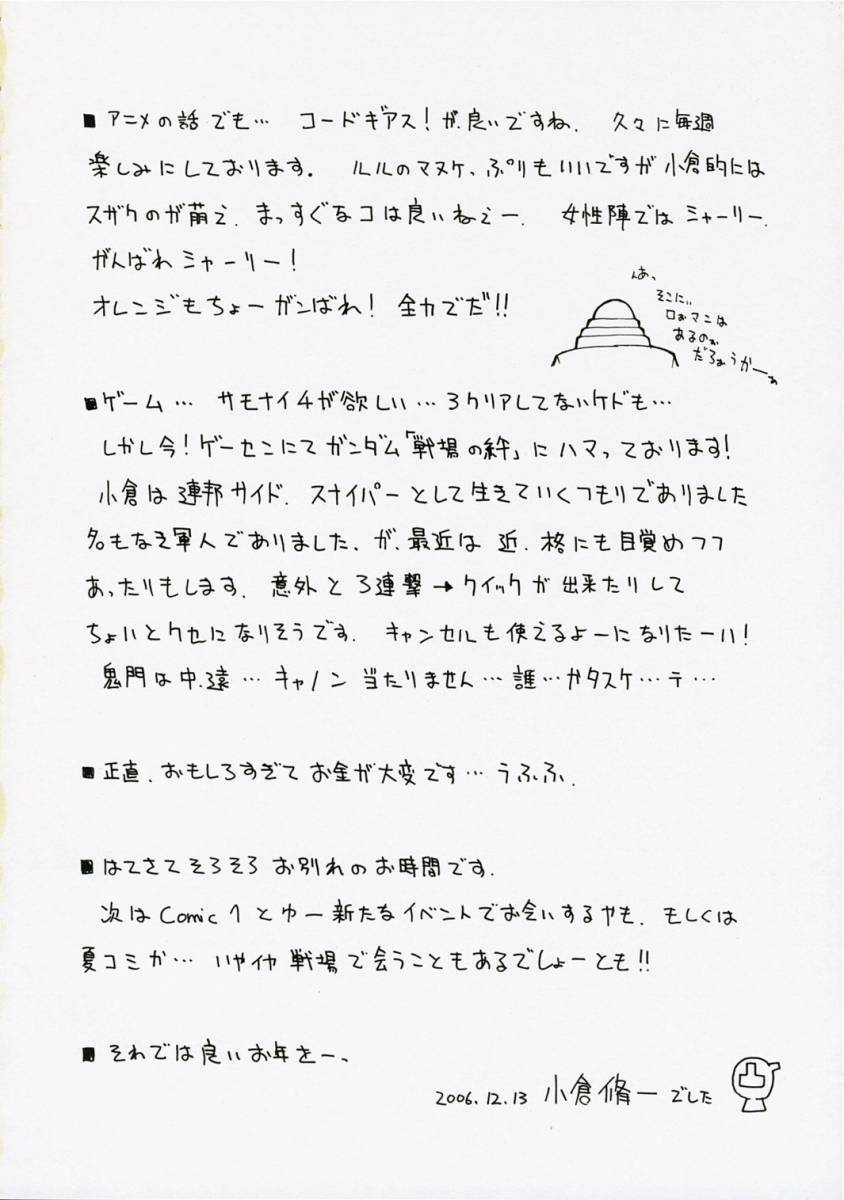 ■アニメの話でも… コードギアス！が、良いですね、 久々に毎週
楽しみにしております。 ルルのマヌケっぷりもいいですが小倉的には
スザクのが萌え、まっすぐなコは良いねぇー、 女性陣ではシャーリー、
がんばれシャーリー！
オレンジもちょーガンばれ！ 全力でだ!!
んあ、
そこにぃ
ロぉマンは
あるのぉ
だろぉうかーぁ
■ゲーム… サモナイ4が欲しい…3クリアしてないケドも…
しかし今！ゲーセンにてガンダム「戦場の絆」にハマっております！
小倉は連邦サイド、スナイパーとして生きていくつもりでありました
名もなき軍人でありました、が、最近は 近、格にも目覚めつつ
あったりもします、意外と3連撃→クイックが出来たりして
ちょいとクセになりそうです、 キャンセルも使えるよーになりたーい！
鬼門は中、遠…キャノン当たりません…誰…かタスケ…テ…
■正直、おもしろすぎてお金が大変です…うふふ、
■はてさてそろそろお別れのお時間です、
次はComic1とゆー新たなイベントでお会いするやも、もしくは
夏コミか… いやイヤ戦場で会うこともあるでしょーとも!!
■それでは良いお年をー、
2006.12.13 小倉脩一でした